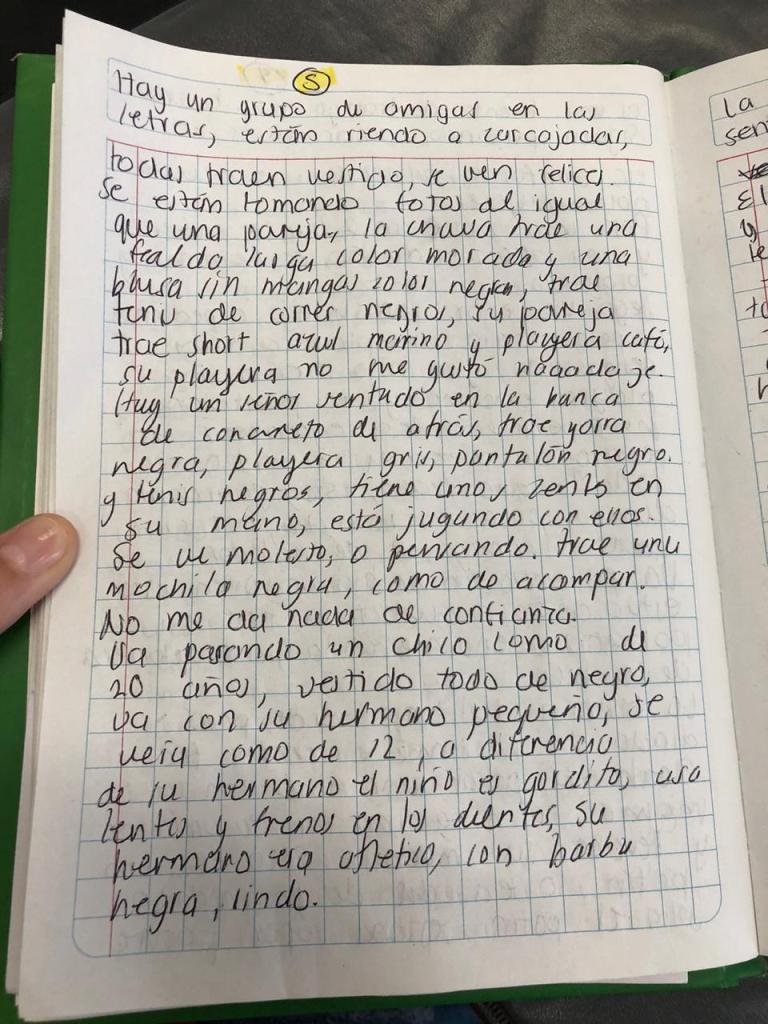 S
Hay un grupo de amigas en las
letras, están riendo a carcajadas,
todas traen vestido, se ven felices.
se están tomando fotos al igual
que una pareja, la chava trae una
falda larga color morada y una
blusa sin mangas color negra, trae
tenis de correr negros, su pareja
trae short azul marino y playera café,
su playera no me gustó naaada je.
Hay un señor sentado en la banca
de concreto de atrás, trae gorra
negra, playera gris, pantalón negro.
y tenis negros, tiene unos lents en
su mano, está jugando con ellos.
Se ve molesto, o pensando. trae una
mochila negra, como de acampar.
No me da nada de confianza.
Va pasando un chico como de
20 años, vestido todo de negro,
va con su hermano pequeño, se
veía como de 12, a diferencia
de su hermano el niño es gordito, usa
lentes y frenos en los dientes, su
hermano era atletico, con barba
negra, lindo.
la
sen
El
y
le
to